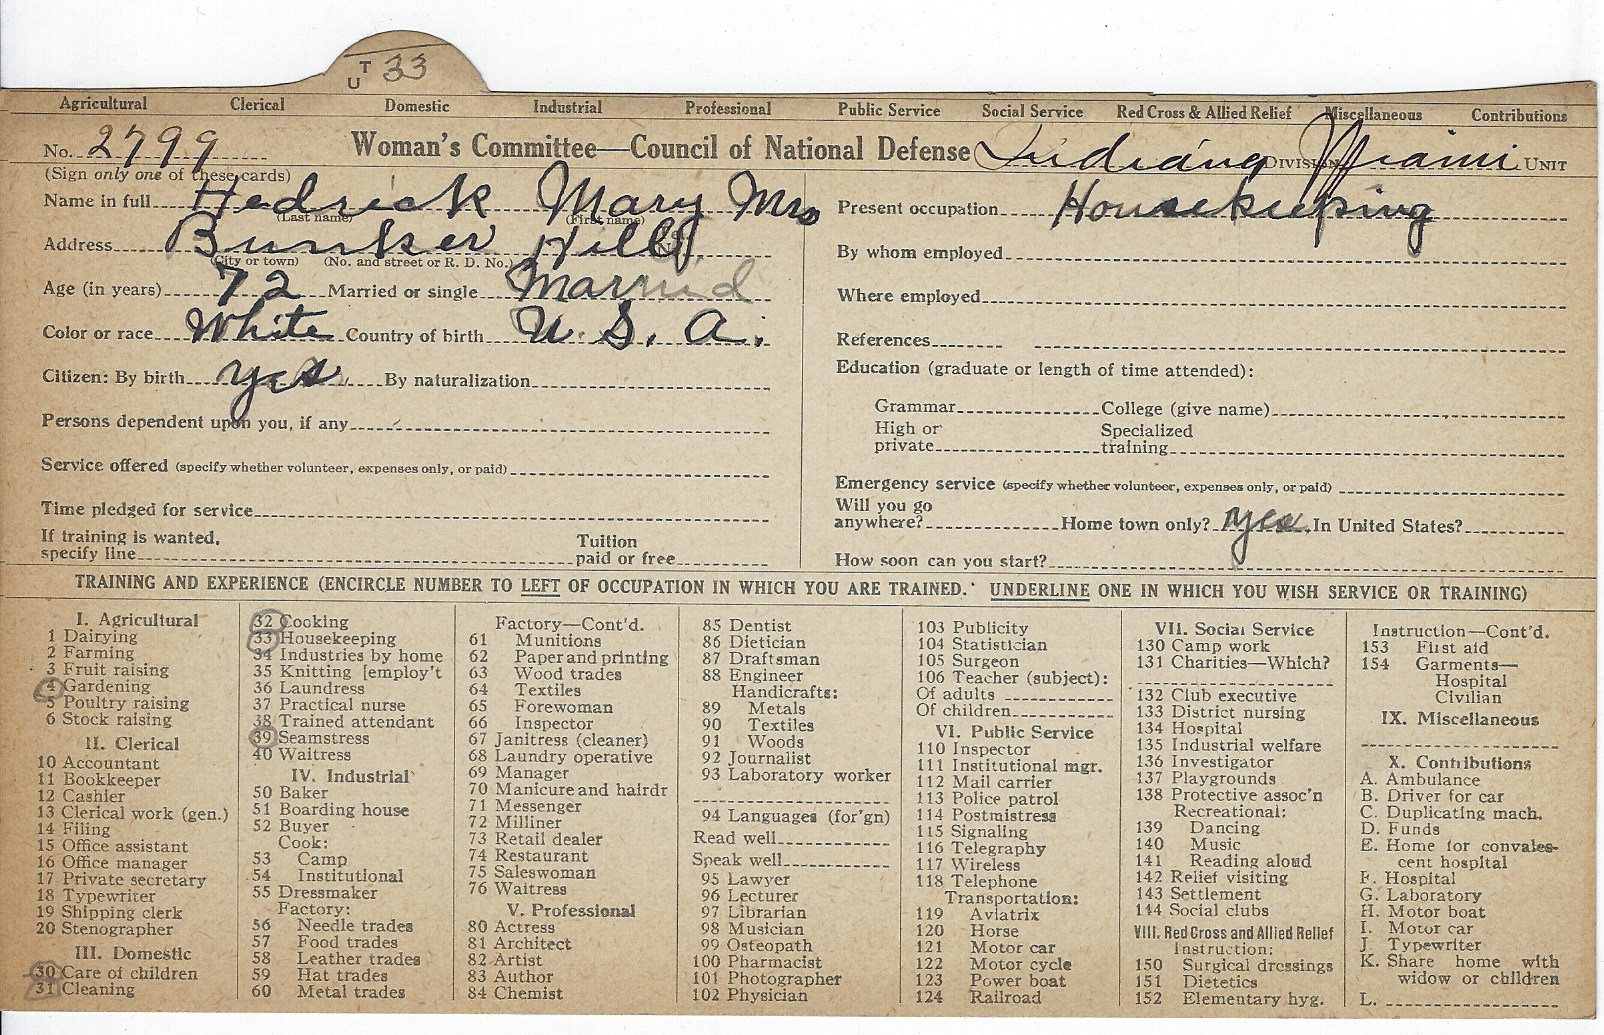 UT 33
Agricultural Clerical Domestic Industrial Professional Public Service Social Service Red Cross & Allied Relief Miscellaneous Contributions
No. 2799 Woman's Committee—Council of National Defense Indiana DIVISION Miami UNIT
(Sign only one of these cards)
Name in full Hedrick Mary Mrs
(Last name) (First name)
Address Bunker Hill
(City or town) (No. and street or R. D. No.)
Age (in years) 72 Married or single Married
Color or race White Country of birth U. S. A.
Citizen: By birth yes By naturalization
Persons dependent upon you, if any
Service offered (specify whether volunteer, expenses only, or paid)
Time pledged for service
If training is wanted, specify line Tuition paid or free
Present occupation Housekeeping
By whom employed
Where employed
References
Education (graduate or length of time attended):
Grammar College (give name)
High or private Specialized training
Emergency service (specify whether volunteer, expenses only, or paid)
Will you go anywhere? Home town only? yes In United States?
How soon can you start?
TRAINING AND EXPERIENCE (ENCIRCLE NUMBER TO LEFT OF OCCUPATION IN WHICH YOU ARE TRAINED. UNDERLINE ONE IN WHICH YOU WISH SERVICE OR TRAINING)
I. Agricultural
1 Dairying
2 Farming
3 Fruit raising
4 Gardening
5 Poultry raising
6 Stock raising
II. Clerical
10 Accountant
11 Bookkeeper
12 Cashier
13 Clerical work (gen.)
14 Filing
15 Office assistant
16 Office manager
17 Private secretary
18 Typewriter
19 Shipping clerk
20 Stenographer
III. Domestic
30 Care of children
31 Cleaning
32 Cooking
33 Housekeeping
34 Industries by home
35 Knitting [employ't
36 Laundress
37 Practical nurse
38 Trained attendant
39 Seamstress
40 Waitress
IV. Industrial
50 Baker
51 Boarding house
52 Buyer
Cook:
53 Camp
54 Institutional
55 Dressmaker
Factory:
56 Needle trades
57 Food trades
58 Leather trades
59 Hat trades
60 Metal trades
Factory—Cont'd.
61 Munitions
62 Paper and printing
63 Wood trades
64 Textiles
65 Forewoman
66 Inspector
67 Janitress (cleaner)
68 Laundry operative
69 Manager
70 Manicure and hairdr
71 Messenger
72 Milliner
73 Retail dealer
74 Restaurant
75 Saleswoman
76 Waitress
V. Professional
80 Actress
81 Architect
82 Artist
83 Author
84 Chemist
85 Dentist
86 Dietician
87 Draftsman
88 Engineer
Handicrafts:
89 Metals
90 Textiles
91 Woods
92 Journalist
93 Laboratory worker
94 Languages (for'gn)
Read well
Speak well
95 Lawyer
96 Lecturer
97 Librarian
98 Musician
99 Osteopath
100 Pharmacist
101 Photographer
102 Physician
103 Publicity
104 Statistician
105 Surgeon
106 Teacher (subject):
Of adults
Of children
VI. Public Service
110 Inspector
111 Institutional mgr.
112 Mail carrier
113 Police patrol
114 Postmistress
115 Signaling
116 Telegraphy
117 Wireless
118 Telephone
Transportation:
119 Aviatrix
120 Horse
121 Motor car
122 Motor cycle
123 Power boat
124 Railroad
VII. Social Service
130 Camp work
131 Charities—Which?
132 Club executive
133 District nursing
134 Hospital
135 Industrial welfare
136 Investigator
137 Playgrounds
138 Protective assoc'n
Recreational:
139 Dancing
140 Music
141 Reading aloud
142 Relief visiting
143 Settlement
144 Social clubs
VIII. Red Cross and Allied Relief
Instruction:
150 Surgical dressings
151 Dietetics
152 Elementary hyg.
Instruction—Cont'd.
153 First aid
154 Garments—
Hospital
Civilian
IX. Miscellaneous
X. Contributions
A. Ambulance
B. Driver for car
C. Duplicating mach.
D. Funds
E. Home for convales-
cent hospital
F. Hospital
G. Laboratory
H. Motor boat
I. Motor car
J. Typewriter
K. Share home with
widow or children
L.